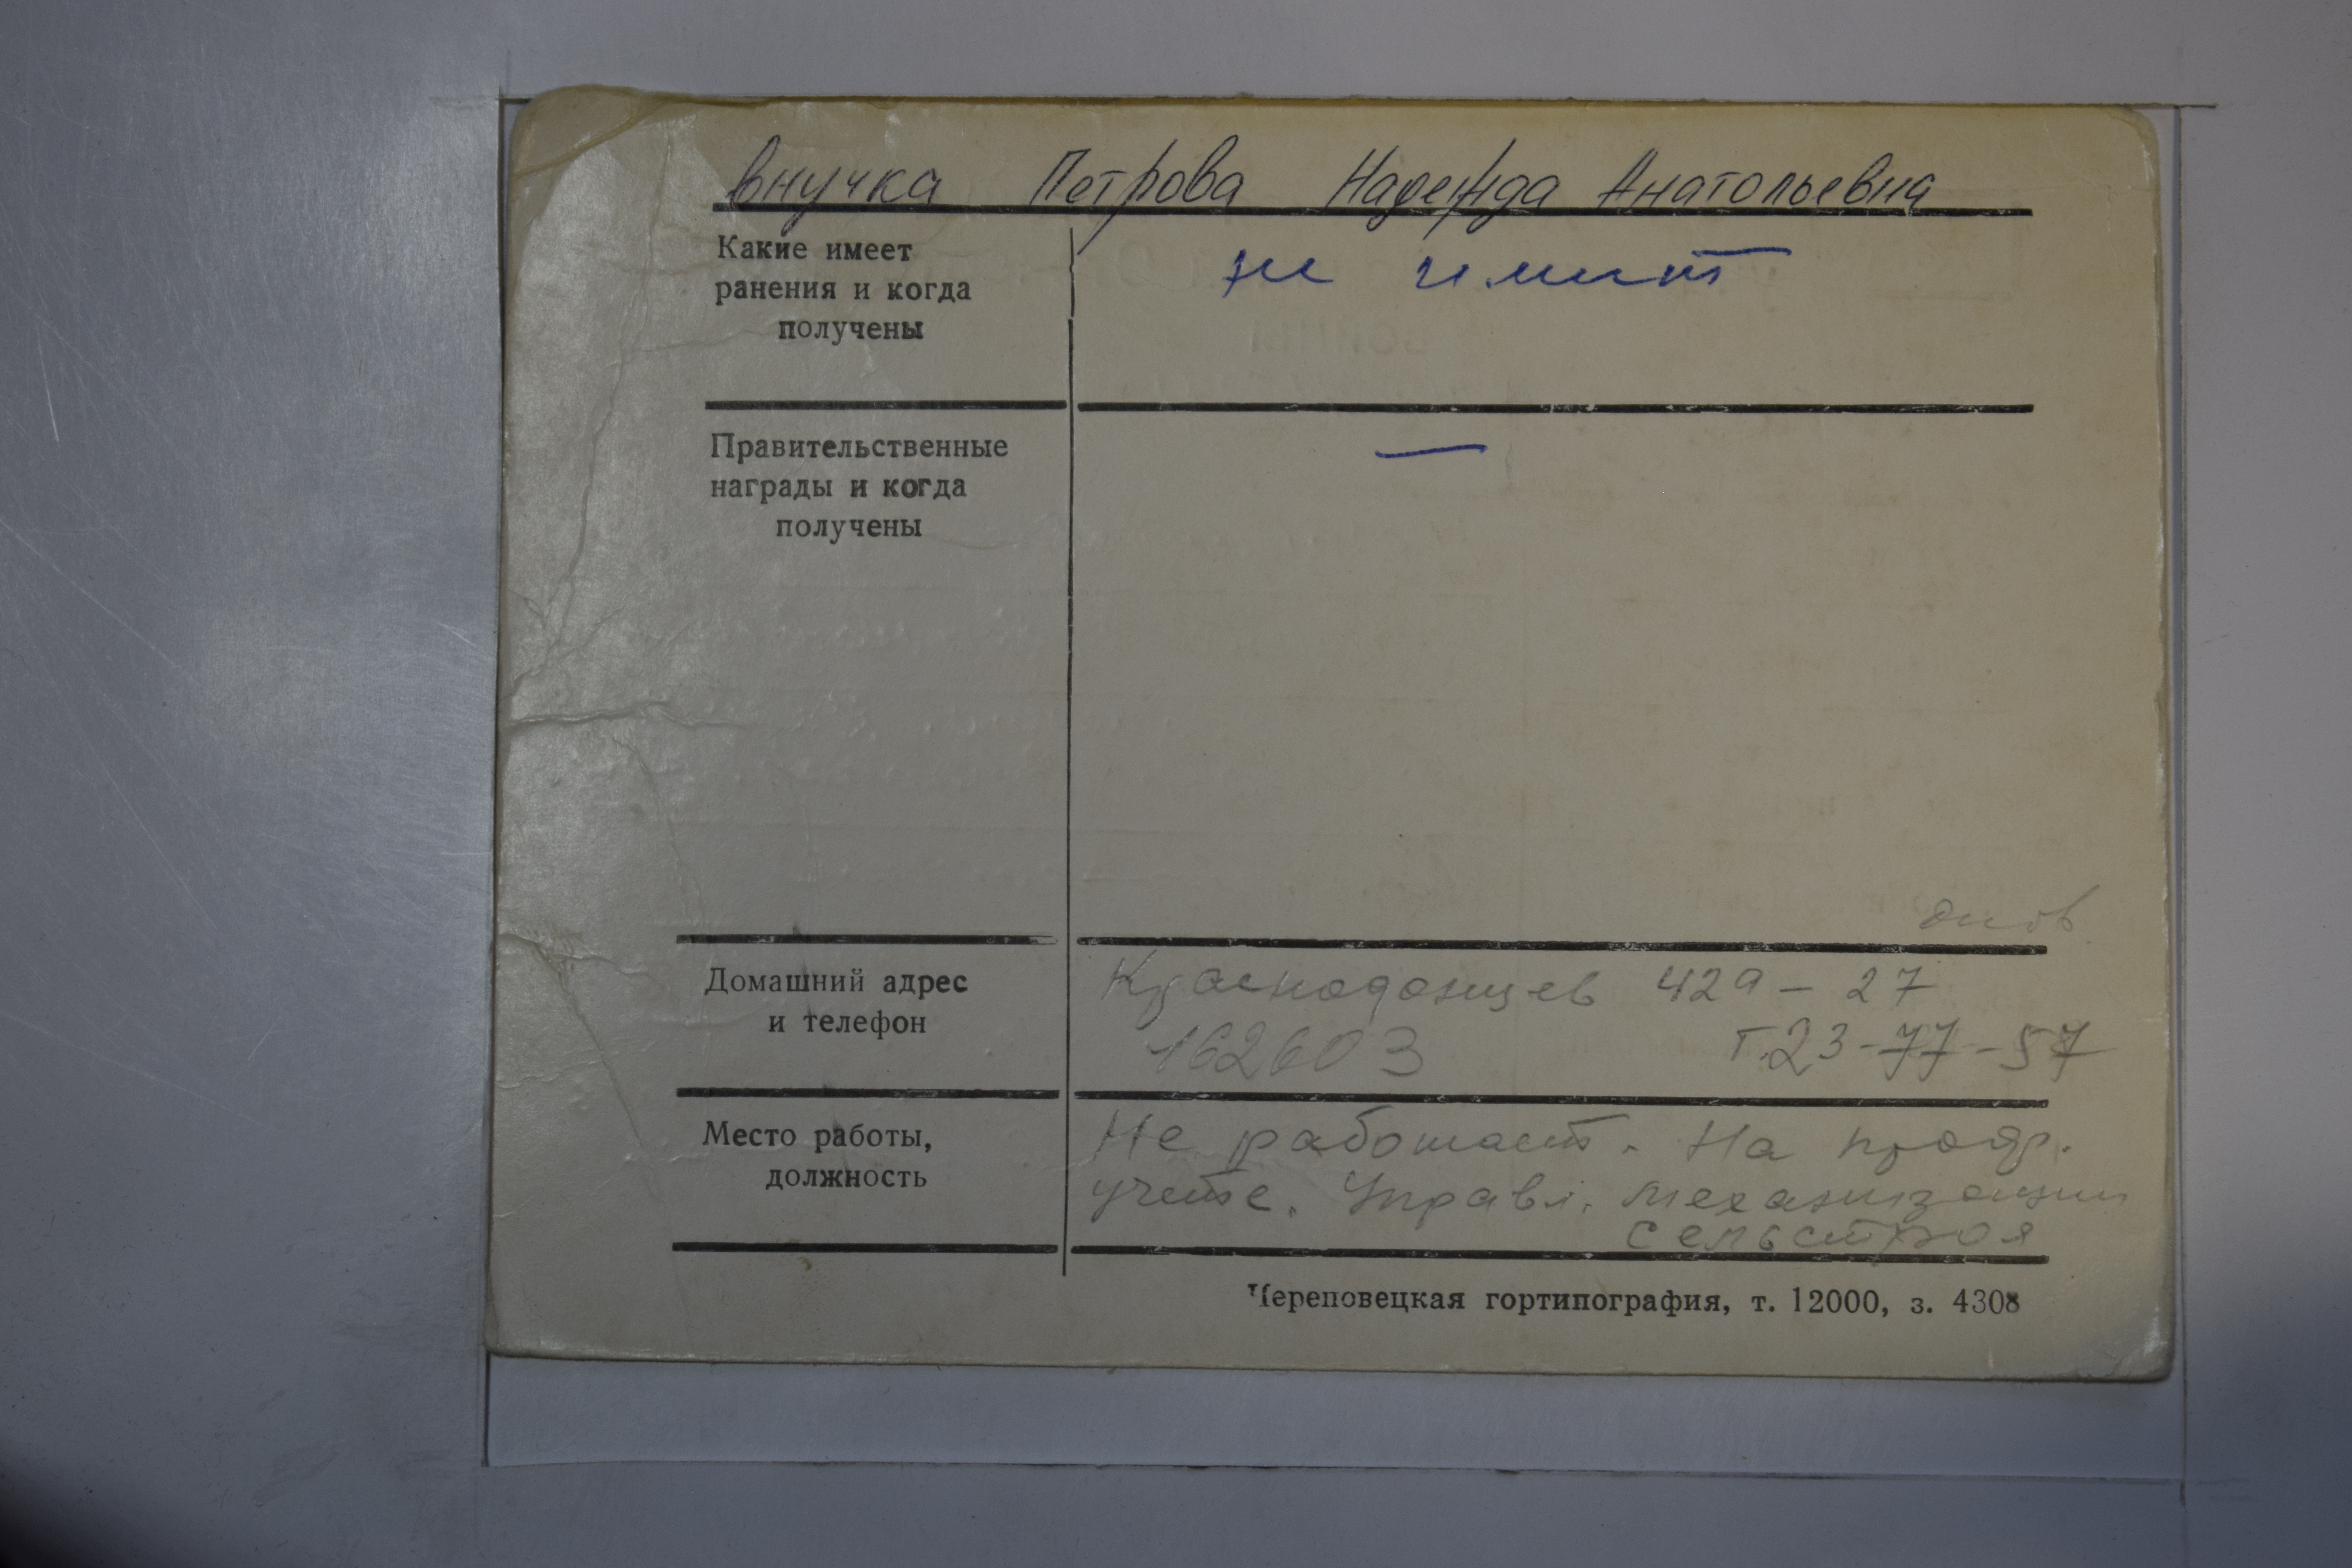 внучка Петрова Надежда Анатольевна
Какие имеет ранения и когда получены
не имеет
Правительственные награды и когда получены
—
Домашний адрес и телефон
Краснодонцев 42а - 27
162603 т.23-77-57
Место работы, должность
Не работает. На профр.
учете. Управл. механизации
сельстроя
Череповецкая гортипография, т. 12000, з. 4308